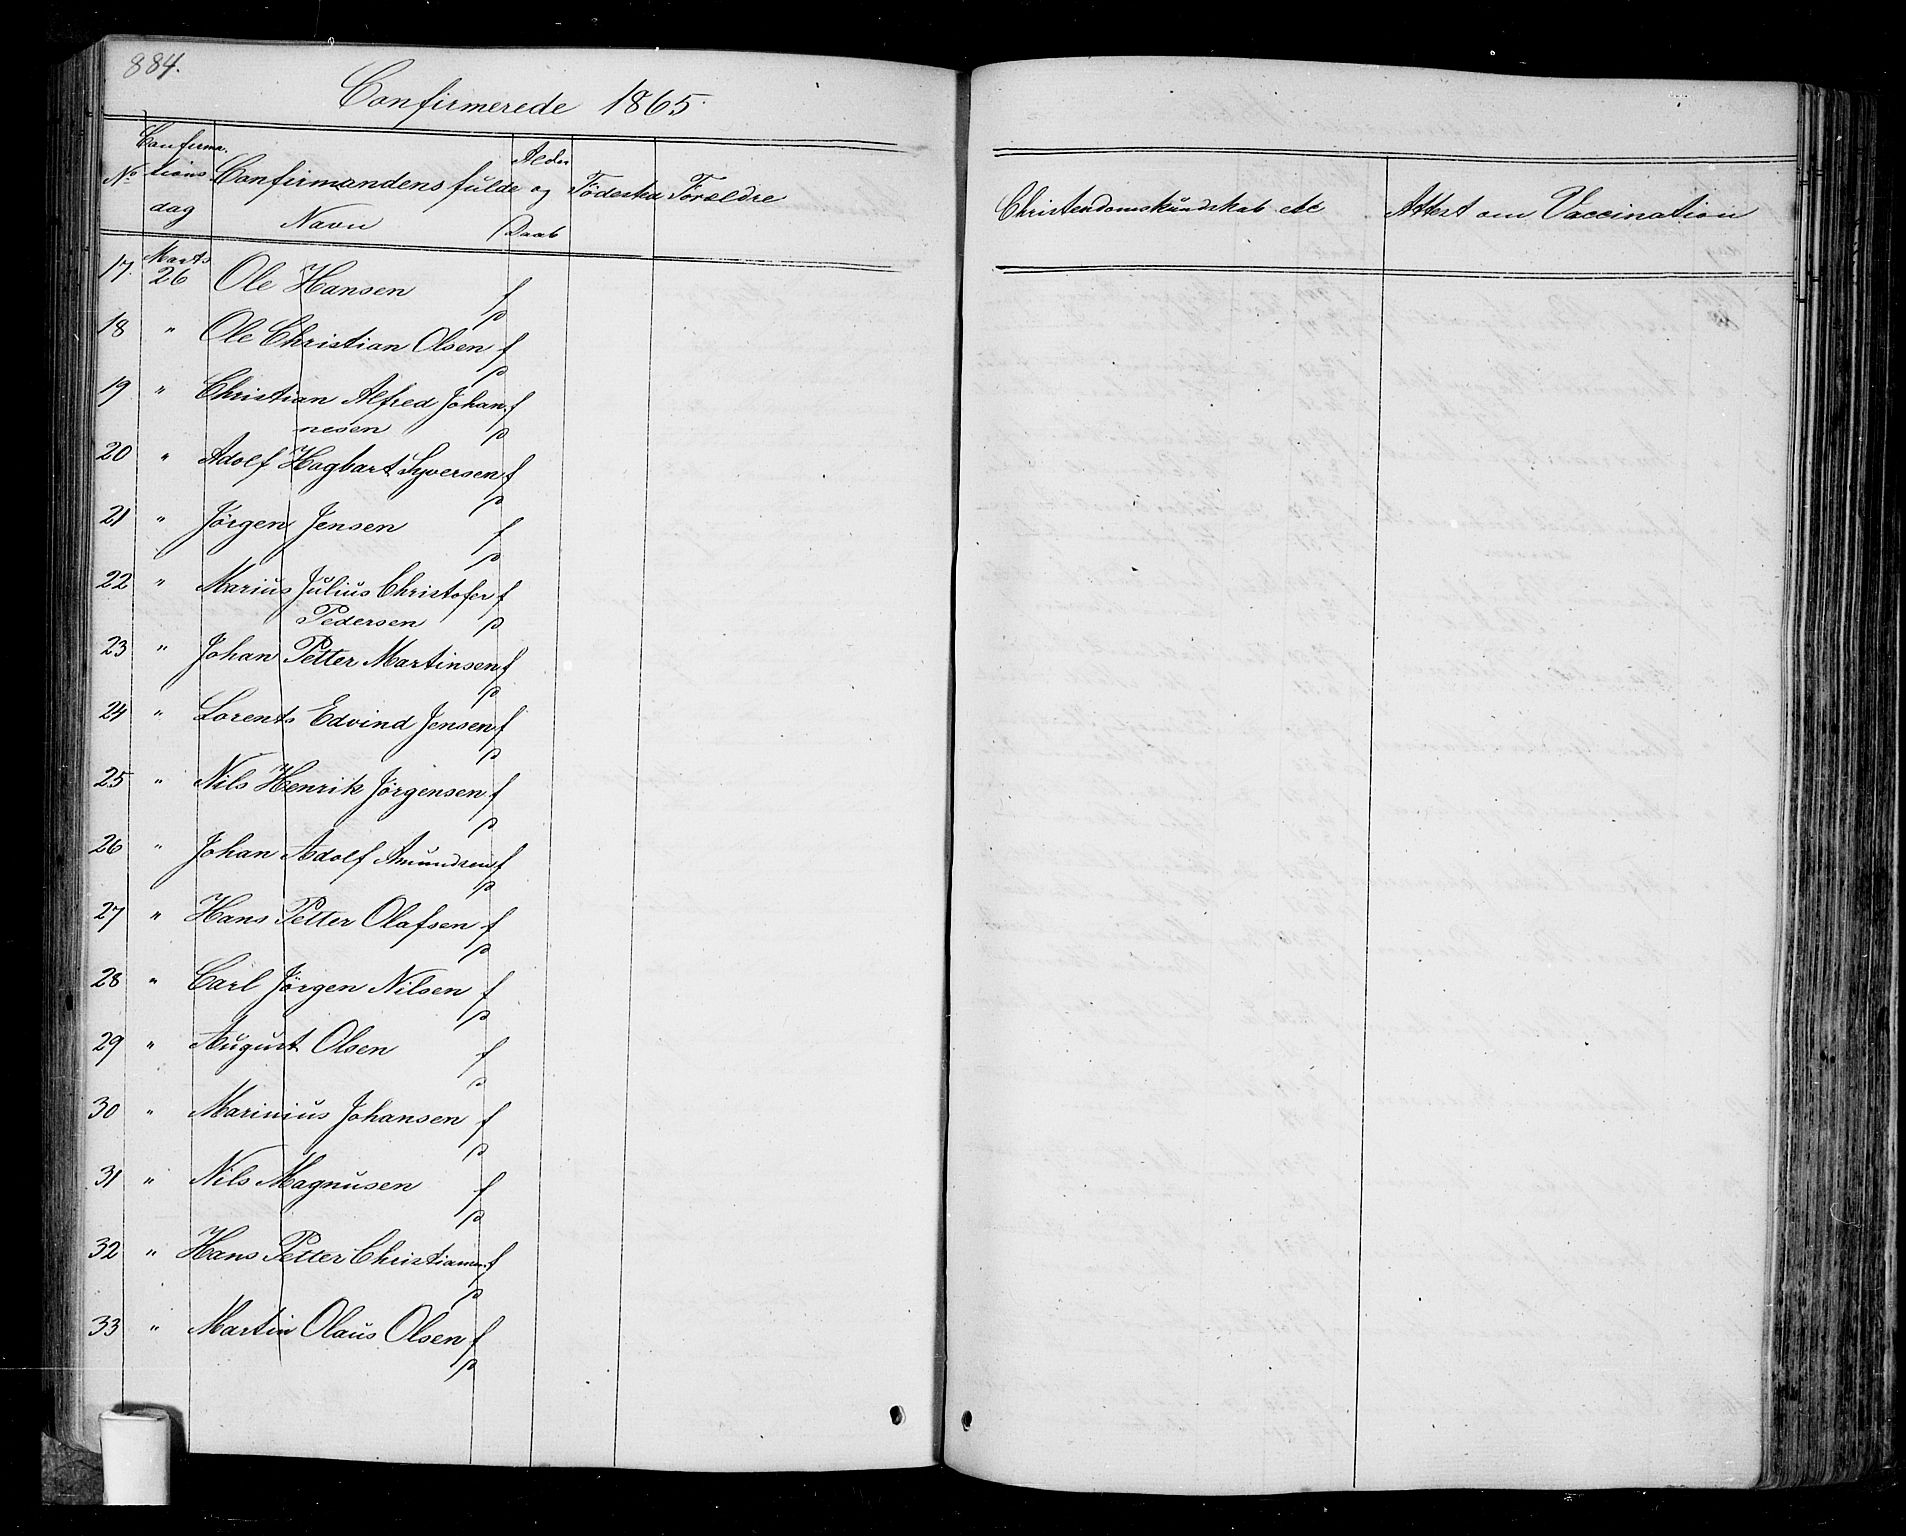 884.
Confirmerede 1865.
No Confirmations dag Confirmandens fulde Navn Alder og Daab Födested Forældre Christendomskundskab etc Attest om Vaccination
17. Marts 26 Ole Hansen f
p
18 " Ole Christian Olsen f
p
19 " Christian Alfred Johan- f
nesen p
20 " Adolf Hagbart Syversen f
p
21 " Jörgen Jensen f
p
22 " Marius Julius Christofer f
Pedersen p
23 " Johan Petter Martinsen f
p
24 " Lorents Edvind Jensen f
p
25 " Nils Henrik Jörgensen f
p
26 " Johan Adolf Amundsen f
p
27 " Hans Petter Olafsen f
p
28 " Carl Jörgen Nilsen f
p
29 " August Olsen f
p
30 " Marinius Johansen f
p
31 " Nils Magnusen f
p
32 " Hans Petter Christiansen f
p
33 " Martin Olaus Olsen f
p